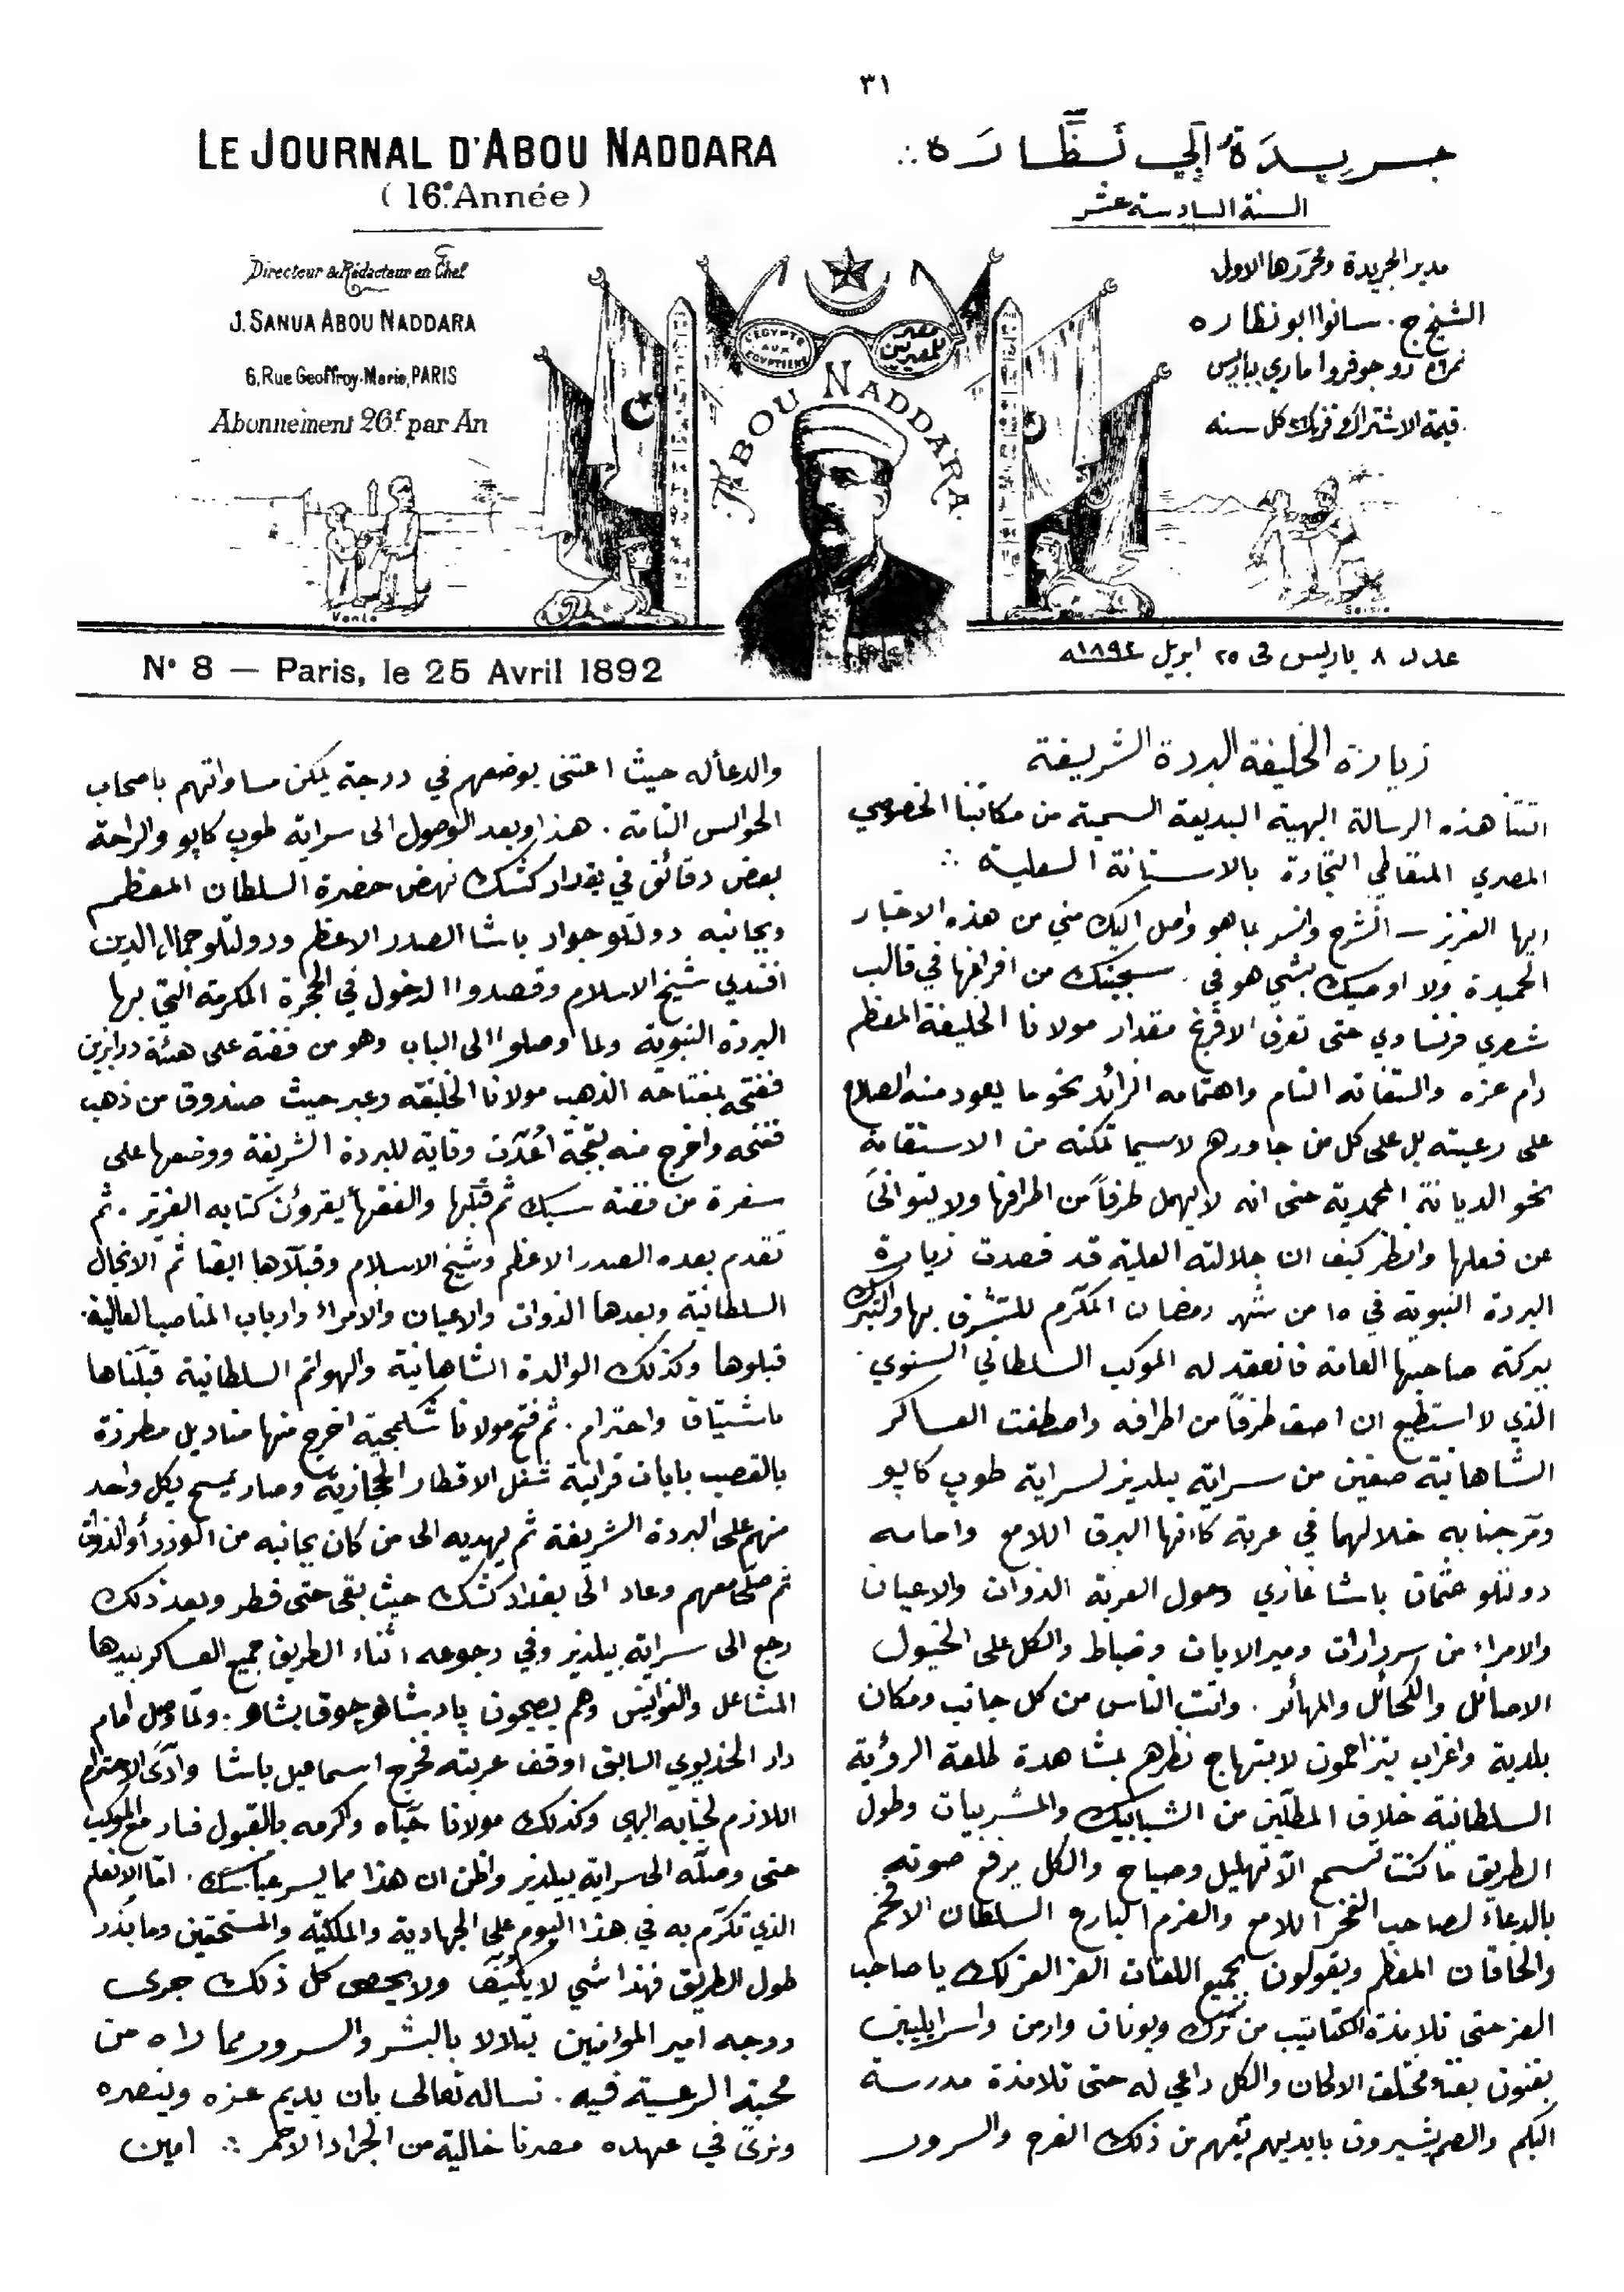 ٣١
LE JOURNAL D'ABOU NADDARA
(16e Année)
Directeur & Rédacteur en Chef
J. SANUA ABOU NADDARA
6, Rue Geoffroy-Marie, PARIS
Abonnement 26f par An
جريدة أبي نظاره
السنة السادسة عشر
مدير الجريدة ومحررها الاول
الشيخ ج. سانوا ابو نظاره
نمرة ٦ رو جوفروا ماري بباريس
قيمة الاشتراك ٢٦ فرنك كل سنه
L'EGYPTE AUX EGYPTIENS
مصر للمصريين
ABOU NADDARA
N° 8 — Paris, le 25 Avril 1892
عدد ٨ باريس فى ٢٥ ابريل ١٨٩٢
زيارة الخليفة البردة الشريفة
اتتنا هذه الرسالة البهية البديعة السمية من مكاتبنا الخصوصي
المصري المتعاطي التجارة بالاستانة العلية
ايها العزيز — انشرح وانسر بما هو واصل اليك مني من هذه الاخبار
الحميدة ولا اوصيك بشي هو في سجيتك من افراغها في قالب
شعري فرنساوي حتى تعرف الافرنج مقدار مولانا الخليفة المعظم
دام عزه والتفاته التام واهتمامه الزائد نحو ما يعود منه الصلاح
على رعيته بل على كل من جاورهم لاسيما تمكنه من الاستقامة
نحو الديانة المحمدية حتى انه لا يهمل طرفاً من اطرافها ولا يتوانى
عن فعلها وانظر كيف ان جلالته العلية قد قصدت زيارة
البردة النبوية في ١٥ من شهر رمضان المكرم للتشرف بها والتبرك
ببركة صاحبها العامة فانعقد له الموكب السلطاني السنوي
الذي لا استطيع ان اصف طرفاً من اطرافه واصطفت العساكر
الشاهانية صفين من سراية ييلديز لسراية طوب كاپو
ومر جنابه خلالهما في عربة كانها البرق اللامع وامامه
دولتلو عثمان باشا غازي وحول العربة الذوات والاعيان
والامراء من سردارات وميرالايات وضباط والكل على الخيول
الاصائل والكحائل والمهائر. واتت الناس من كل جانب ومكان
بلدية واغراب يتزاحمون لابتهاج نظرهم بمشاهدة طلعة الرؤية
السلطانية خلاف المطلين من الشبابيك والمشربيات وطول
الطريق ما كنت تسمع الا تهليل وصياح والكل يرفع صوته
بالدعاء لصاحب الفخر اللامع والعزم البارع السلطان الافخم
والخاقان المعظم ويقولون بجميع اللغات العز العز لك يا صاحب
العز حتى تلامذة الكتاتيب من ترك ويونان وارمن واسرايليين
يغنون بغناء مختلف الالحان والكل داعي له حتى تلامذة مدرسة
البكم والصم يشيرون بايديهم تفهم من ذلك الفرح والسرور
والدعأ له حيث اعتنى بوضعهم في درجة يمكن مساواتهم باصحاب
الحواس التامة. هذا وبعد الوصول الى سراية طوب كاپو والراحة
بعض دقائق في بغداد كشك نهض حضرة السلطان المعظم
وبجانبه دولتلو جواد باشا الصدر الاعظم ودولتلو جمال الدين
افندي شيخ الاسلام وقصدوا الدخول في الحجرة المكرمة التي بها
البردة النبوية ولما وصلوا الى الباب وهو من فضة على هيئة درابزين
ففتحه بمفتاحه الذهب مولانا الخليفه وعبر حيث صندوق من ذهب
ففتحه واخرج منه بقجة اعدت وقاية للبردة الشريفة ووضعها على
سفرة من فضة سبك ثم قبلها والفقهأ يقرؤن كتابه العزيز. ثم
تقدم بعده الصدر الاعظم وشيخ الاسلام وقبلاها ايضا ثم الانجال
السلطانية وبعدها الذوات والاعيان والامراء وارباب المناصب العالية
قبلوها وكذلك الوالدة الشاهانية والهوانم السلطانية قبلناها
باشتياق واحترام. ثم فتح مولانا شكمجية اخرج منها مناديل مطرزة
بالقصب بايات قرانية شغل الاقطار الحجازية وصار يمسح بكل واحد
منهم على البردة الشريفة ثم يهديه الى من كان بجانبه من الوزرأ والذوات
ثم صلى معهم وعاد الى بغداد كشك حيث بقى حتى فطر وبعد ذلك
رجع الى سراية ييلديز وفي رجوعه اثناء الطريق جميع العساكر بيدها
المشاعل والفوانيس وهم يصيحون پادشاهم چوق يشا. ولما وصل امام
دار الخديوي السابق اوقف عربته فخرج اسماعيل باشا وأدى الاحترام
اللازم لجنابه البهي وكذلك مولانا حياه واكرمه بالقبول فسار مع الموكب
حتى وصله الى سراية ييلديز واظن ان هذا مما يسر عباسك. اما الانعام
الذي تكرم به في هذا اليوم على الجهادية والملكية والمستحقين وما بذر
طول الطريق فهذا شي لا يكيف ولا يحصى كل ذلك جرى
ووجه امير المؤمنين يتلالا بالبشر والسرور مما راه من
محبة الرعية فيه. نساله تعالى بان يديم عزه وينصره
ونرى في عهده مصرنا خالية من الجراد الاحمر امين